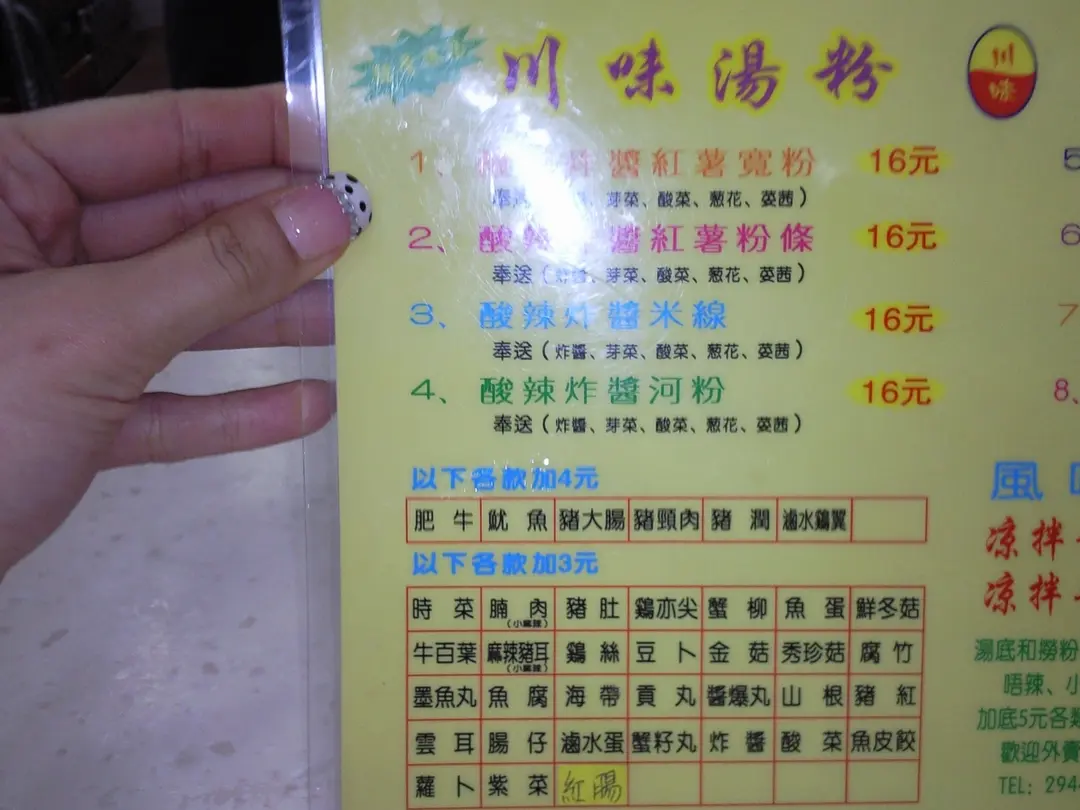 川味湯粉
川
味
1、 醬紅薯寬粉 16元
奉 芽菜、酸菜、葱花、芫茜)
2、酸辣 醬紅薯粉條 16元
奉送(炸醬、芽菜、酸菜、葱花、芫茜)
3、酸辣炸醬米線 16元
奉送(炸醬、芽菜、酸菜、葱花、芫茜)
4、酸辣炸醬河粉 16元
奉送(炸醬、芽菜、酸菜、葱花、芫茜)
5
6
7
8、
以下各款加4元
肥牛 魷魚 豬大腸 豬頸肉 豬潤 滷水鷄翼
以下各款加3元
時菜 腩肉(小麻辣) 豬肚 鷄亦尖 蟹柳 魚蛋 鮮冬菇
牛百葉 麻辣豬耳(小麻辣) 鷄絲 豆卜 金菇 秀珍菇 腐竹
墨魚丸 魚腐 海帶 貢丸 醬爆丸 山根 豬紅
雲耳 腸仔 滷水蛋 蟹籽丸 炸醬 酸菜 魚皮餃
蘿卜 紫菜 紅腸
風
凉拌
凉拌
湯底和撈粉
唔辣、小
加底5元各
歡迎外賣
TEL: 294